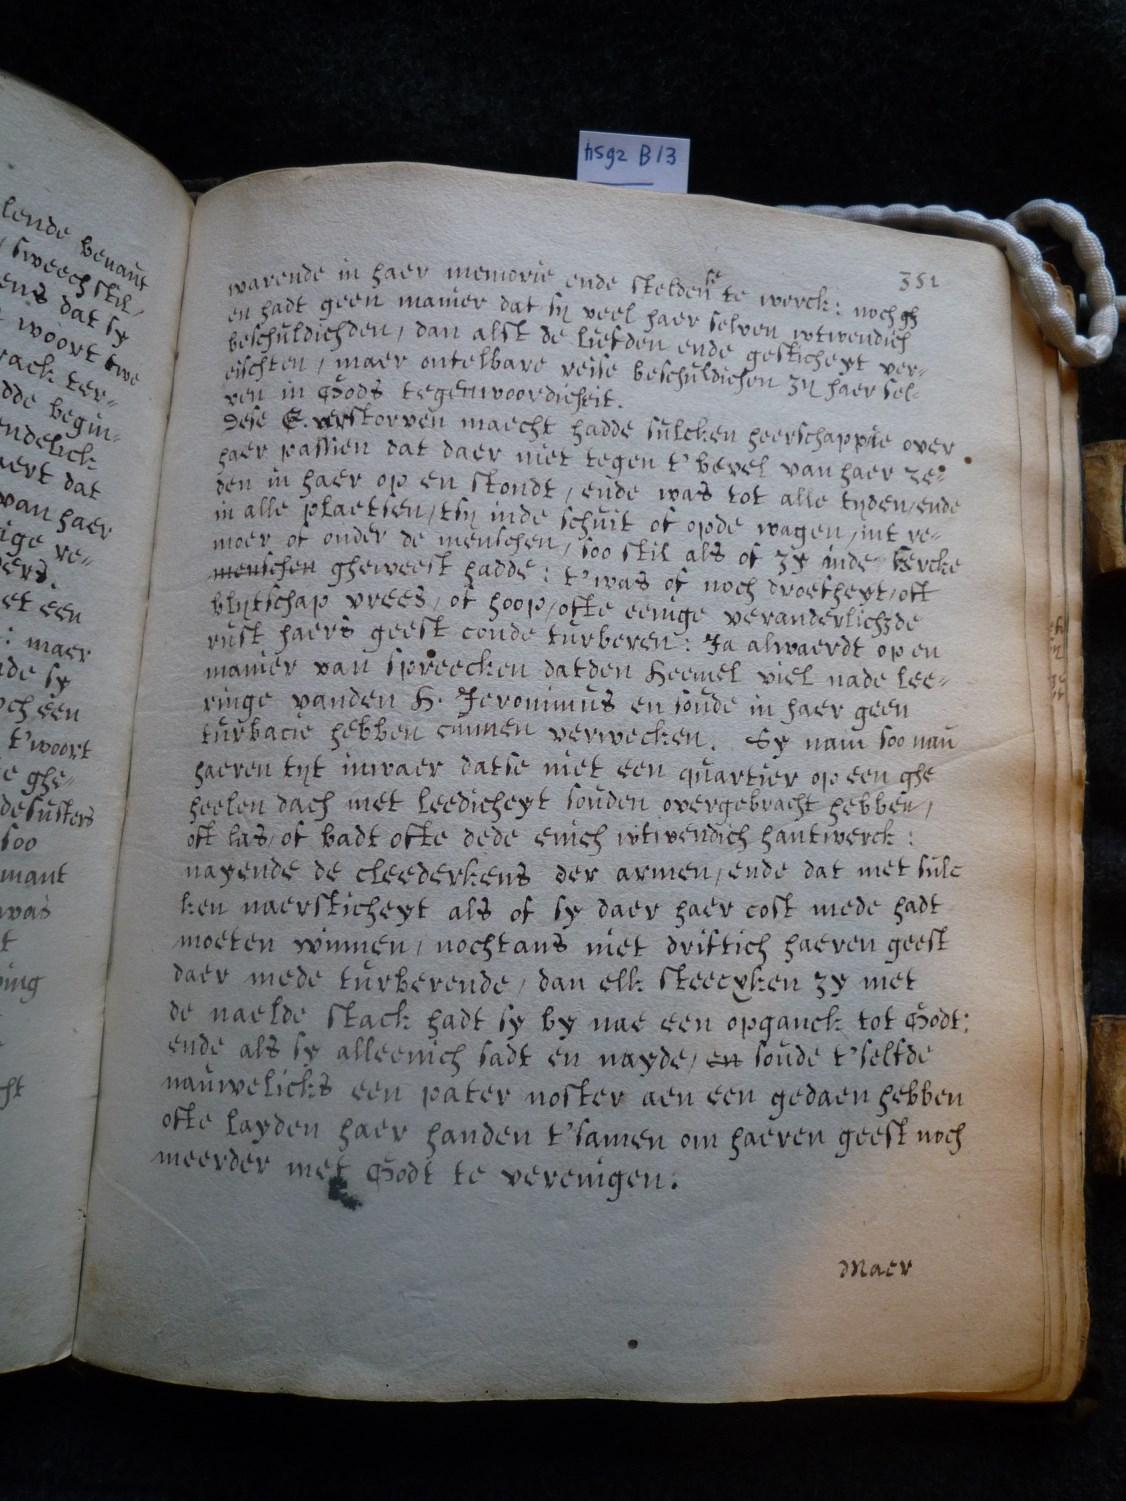 hs92 B13
351
warende in haer memorie ende stelden se te werck: noch gh
en hadt geen manier dat sij veel haer selven wtwendich
beschuldichden, dan alst de liefden ende gesticheyt ver-
eischten, maer ontelbare reise beschuldichen zij haer sel-
ven in Gods tegenwoordicheit.
Dese E. verstorven maecht hadde sulcken heerschappie over
haer passien dat daer niet tegen t'bevel van haer re-
den in haer op en stondt, ende was tot alle tyden, ende
in alle plaetsen, tsij inde schuit of opde wagen, int re-
moer of onder de menschen, soo stil als of zy inde kercke
menschen gheweest hadde: t'was of noch droefheyt, oft
blijtschap vrees, of hoop, ofte eenige veranderlichde
rust haers geest conde turberen: Ja alwaerdt op en
manier van spreecken datden heemel viel nade lee-
ringe vanden H. Jeronimus en soude in haer geen
turbacie hebben cunnen verwecken. Sy nam soo nau
haeren tyt inwaer datse niet een quartier op een ghe
heelen dach met leedicheyt souden overgebracht hebben,
oft las, of badt ofte dede enich wtwendich hantwerck:
nayende de cleederkens der armen, ende dat met sulc
ken naersticheyt als of sy daer haer cost mede hadt
moeten winnen, nochtans niet driftich haeren geest
daer mede turberende, dan elk steecxken zy met
de naelde stack hadt sy by nae een opganck tot Godt:
ende als sy alleenich sadt en nayde, en soude t'selfde
nauwelicks een pater noster aen een gedaen hebben
ofte layden haer handen t'samen om haeren geest noch
meerder met Godt te verenigen.
Maer
lende benaut
sweech stil,
ens dat sy
woort twe
rack ter-
dde begin-
endelick
aert dat
van haer
ige ve-
et een
: maer
de sy
och een
t'woort
e ghe-
de susters
soo
mant
was
t